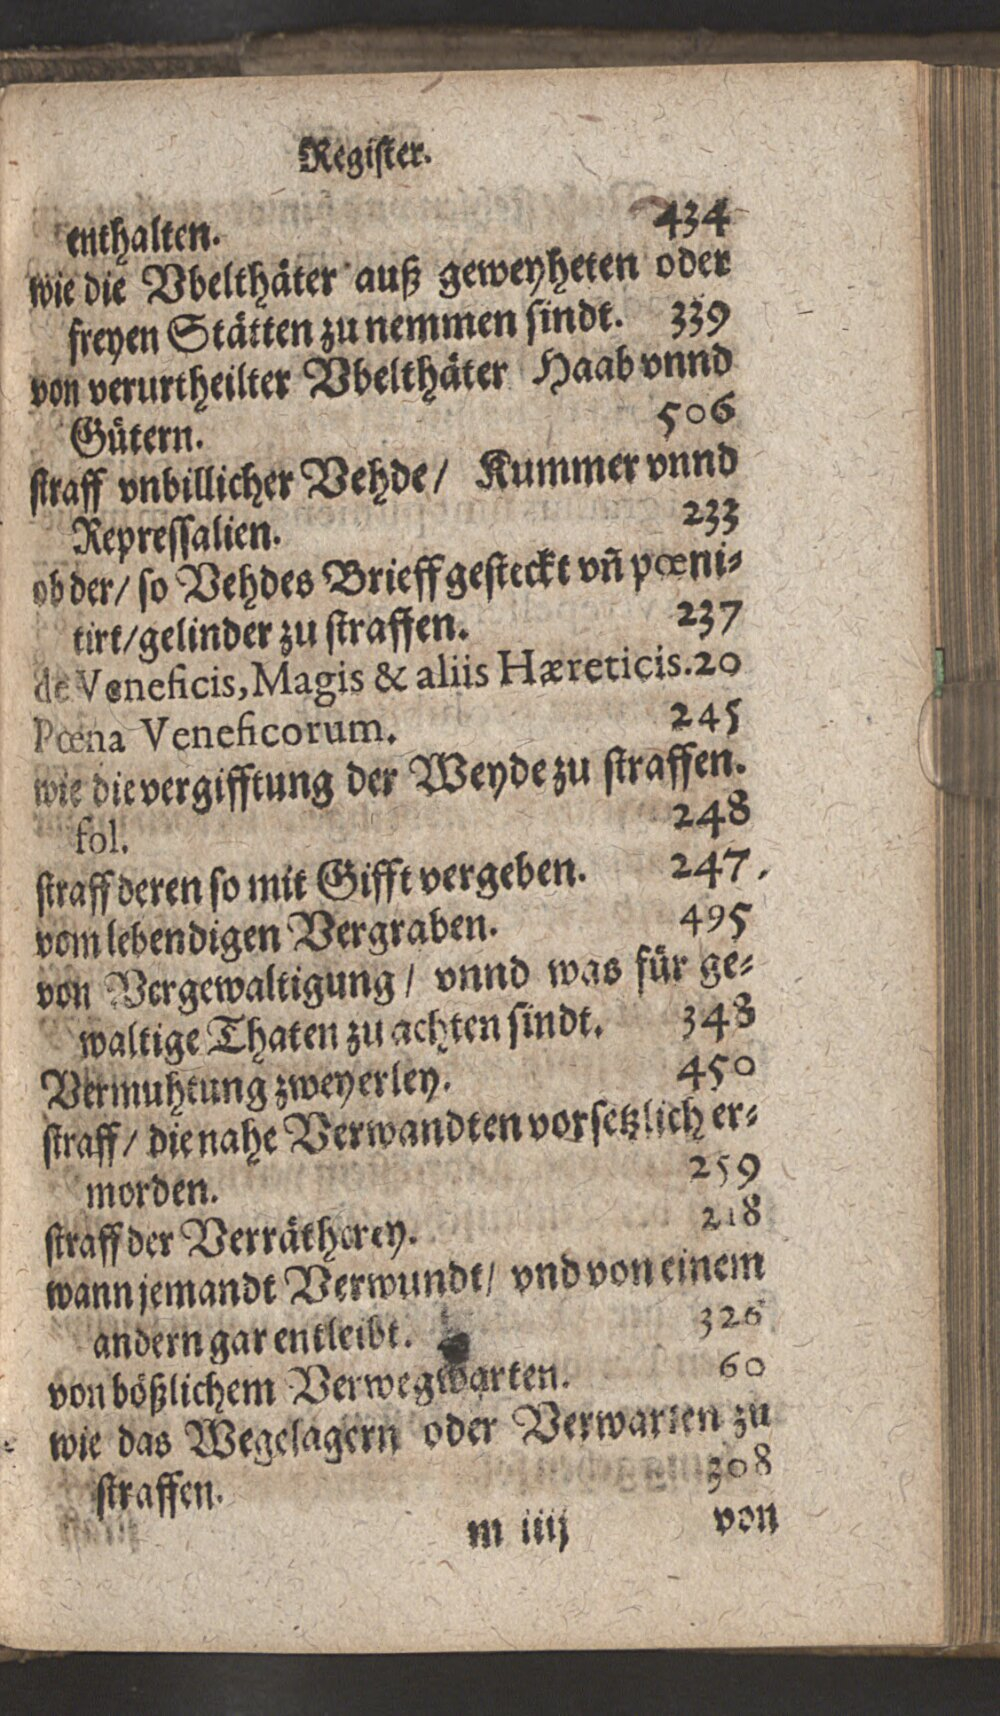 Register.
enthalten. 434
wie die Vbelthäter auß geweyheten oder
freyen Stätten zu nemmen sindt. 339
von verurtheilter Vbelthäter Haab vnnd
Gütern. 506
straff vnbillicher Vehde/ Kummer vnnd
Repressalien. 233
ob der/ so Vehdes Brieff gesteckt vñ pœni-
tirt/gelinder zu straffen. 237
de Veneficis, Magis & aliis Hæreticis. 20
Pœna Veneficorum. 245
wie die vergifftung der Weyde zu straffen.
fol. 248
straff deren so mit Gifft vergeben. 247.
vom lebendigen Vergraben. 495
von Vergewaltigung/ vnnd was für ge-
waltige Thaten zu achten sindt. 348
Vermuhtung zweyerley. 450
straff/ die nahe Verwandten vorsetzlich er-
morden. 259
straff der Verrätherey. 218
wann jemandt Verwundt/ vnd von einem
andern gar entleibt. 326
von bößlichem Verwegwarten. 60
wie das Wegelagern oder Verwarten zu
straffen. 308
m iiij von